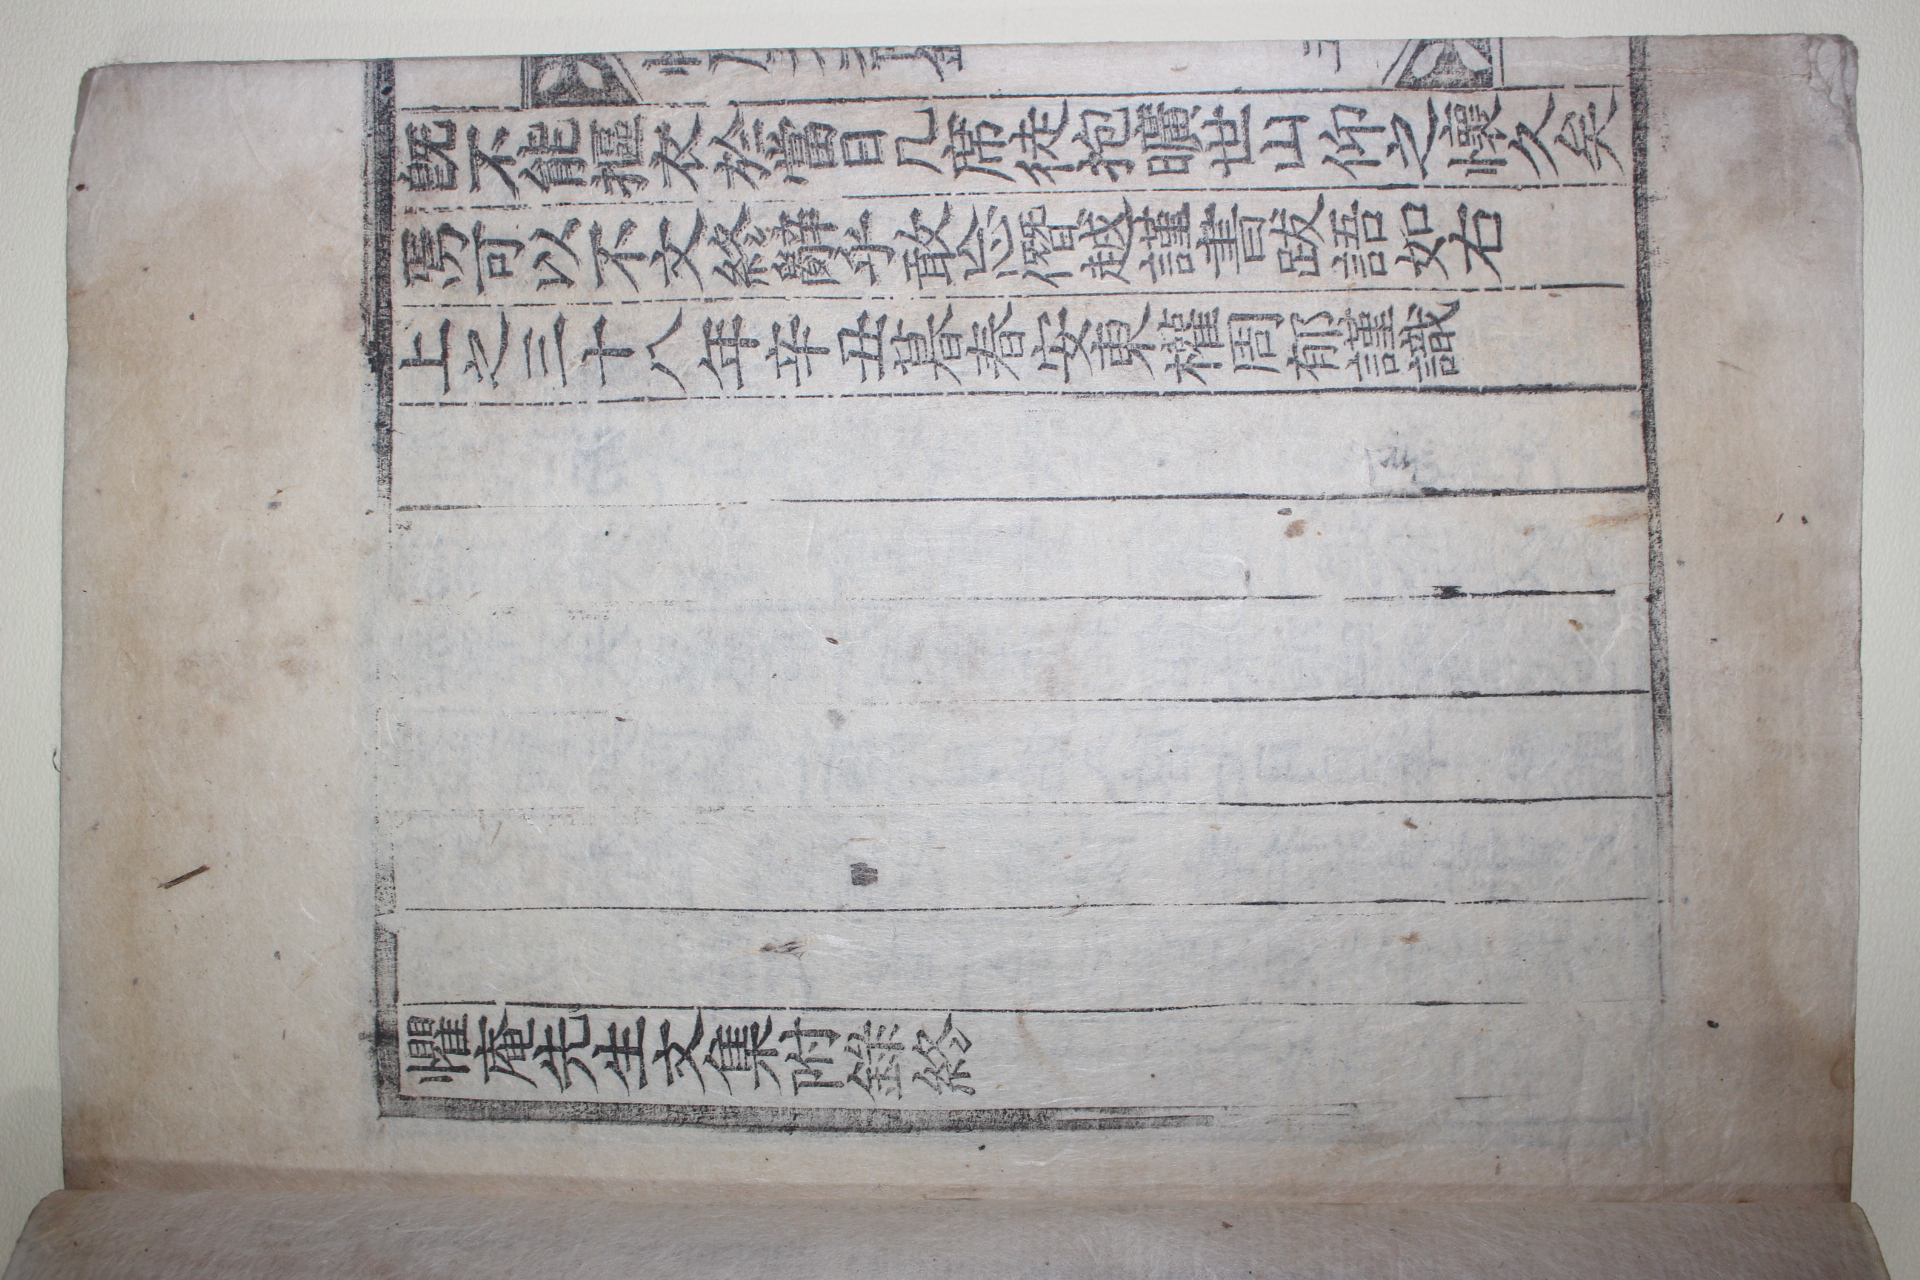 旣不能摳衣於當日几席徒抱曠世山仰之懷久矣
焉可以不文終辭乎敢忘僭越謹書跋語如右
上之三十八年辛丑暮春安東權周郁謹識
懼庵先生文集附錄終